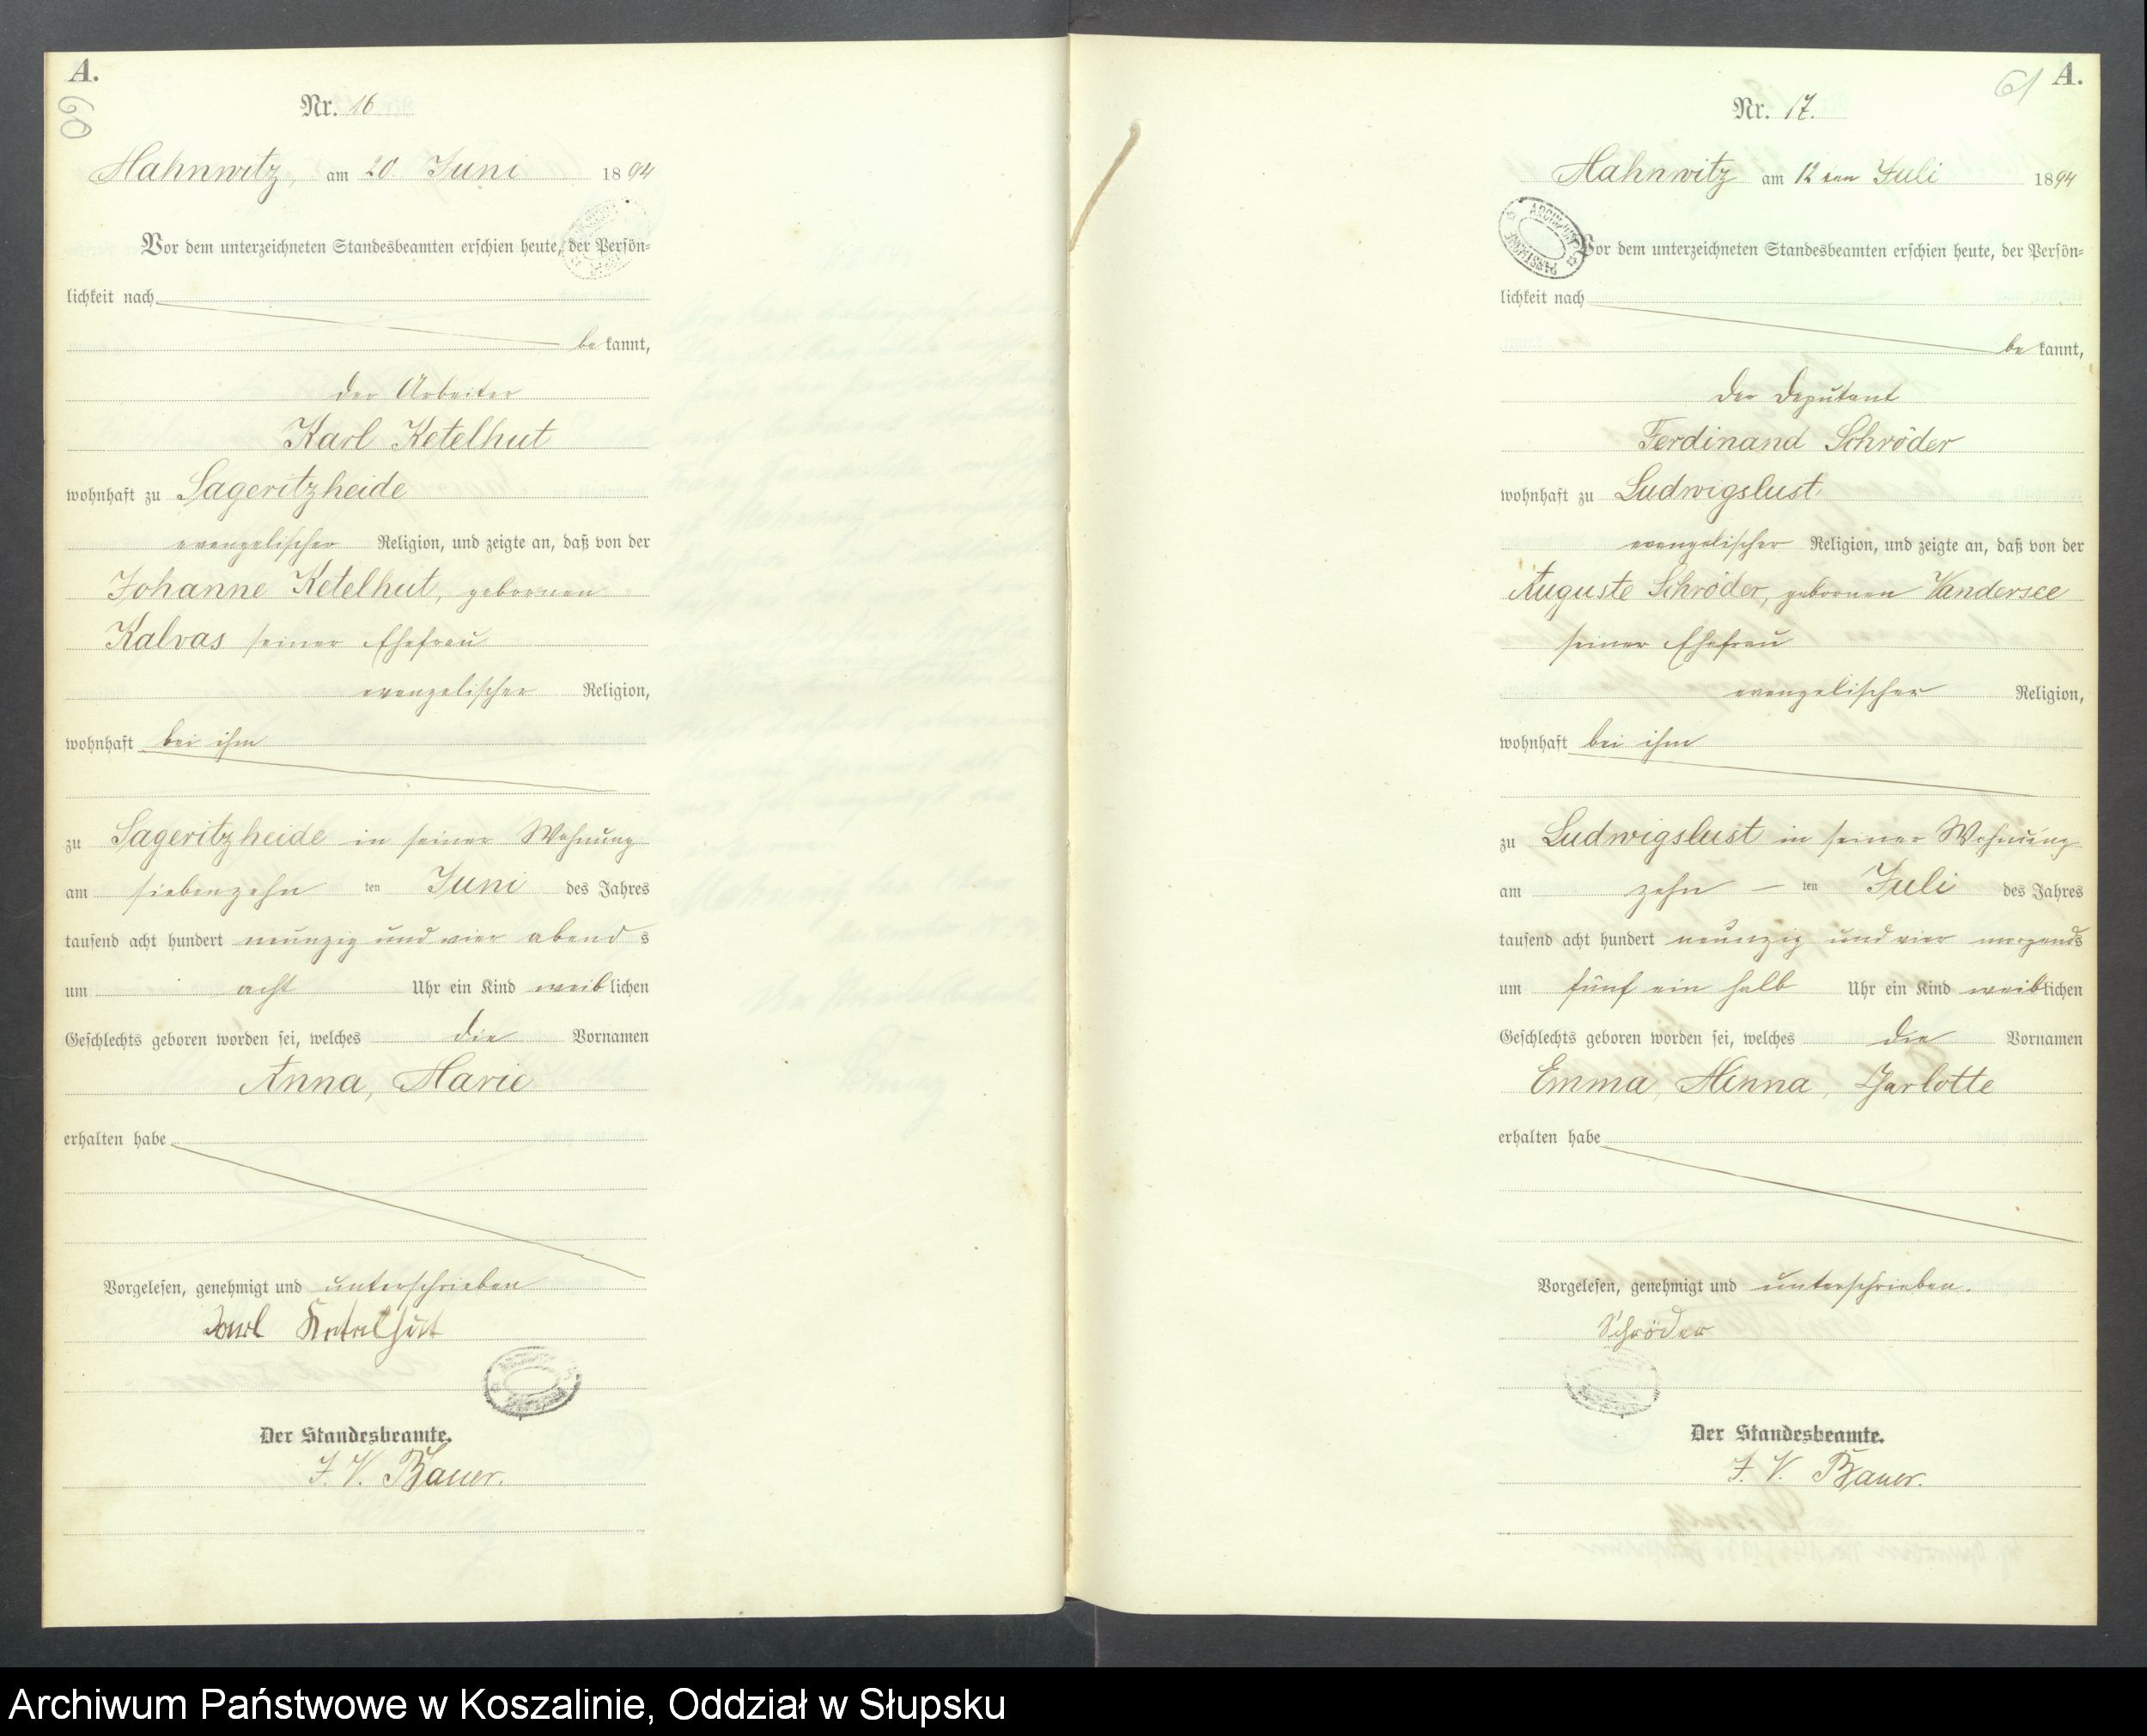 A.
60
Nr. 16
Mahnwitz, am 20. Juni 1894
Vor dem unterzeichneten Standesbeamten erschien heute, der Persön=
lichkeit nach
bekannt,
der Arbeiter
Karl Ketelhut
wohnhaft zu Sageritzheide
evangelischer Religion, und zeigte an, daß von der
Johanne Ketelhut, geborenen
Kalvas seiner Ehefrau
evangelischer Religion,
wohnhaft bei ihm
zu Sageritzheide in seiner Wohnung
am siebenzehn ten Juni des Jahres
tausend acht hundert neunzig und vier abends
um acht Uhr ein Kind weiblichen
Geschlechts geboren worden sei, welches die Vornamen
Anna, Marie
erhalten habe
Vorgelesen, genehmigt und unterschrieben
Karl Ketelhut
Der Standesbeamte.
J. V. Bauer.
61 A.
Nr. 17.
Mahnwitz am 12ten Juli 1894
Vor dem unterzeichneten Standesbeamten erschien heute, der Persön=
lichkeit nach
bekannt,
der Deputant
Ferdinand Schröder
wohnhaft zu Ludwigslust
evangelischer Religion, und zeigte an, daß von der
Auguste Schröder, geborenen Vandersee
seiner Ehefrau
evangelischer Religion,
wohnhaft bei ihm
zu Ludwigslust in seiner Wohnung
am zehn – ten Juli des Jahres
tausend acht hundert neunzig und vier morgends
um fünf ein halb Uhr ein Kind weiblichen
Geschlechts geboren worden sei, welches die Vornamen
Emma, Minna, Jarlotte
erhalten habe
Vorgelesen, genehmigt und unterschrieben.
Schröder
Der Standesbeamte.
J. V. Bauer.
Archiwum Państwowe w Koszalinie, Oddział w Słupsku